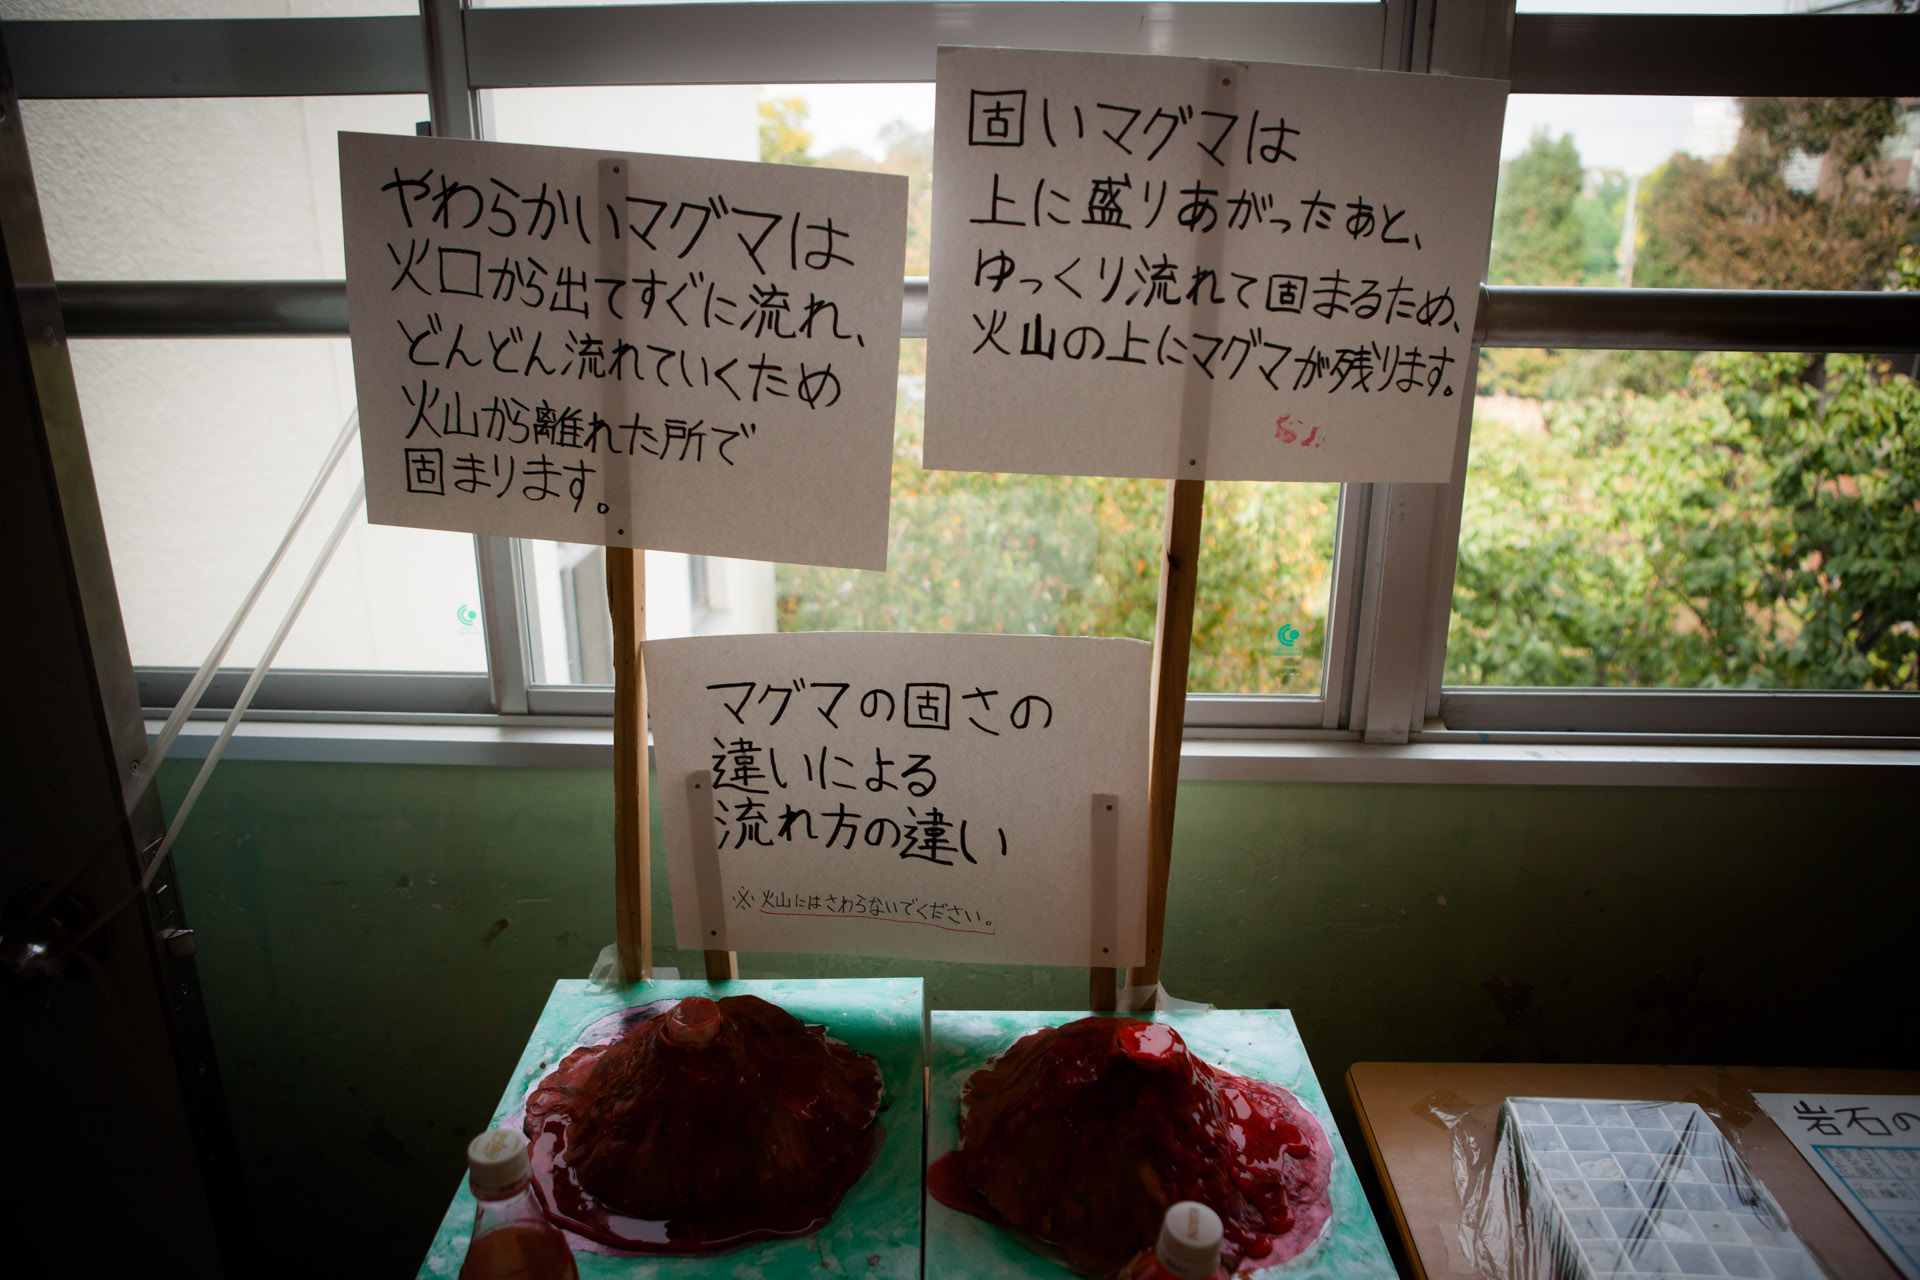 やわらかいマグマは
火口から出てすぐに流れ、
どんどん流れていくため
火山から離れた所で
固まります。
固いマグマは
上に盛りあがったあと、
ゆっくり流れて固まるため、
火山の上にマグマが残ります。
マグマの固さの
違いによる
流れ方の違い
※火山にはさわらないでください。
岩石の